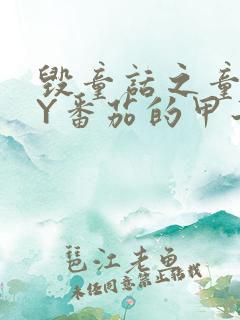 毁童话之童
Y番茄的甲
琶江老鱼
未经同意禁止转载